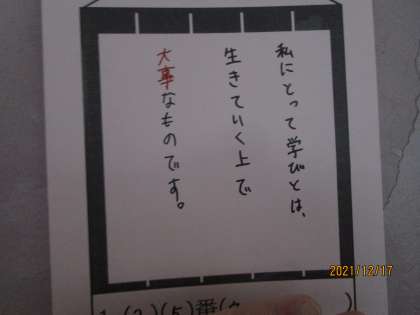 私にとって学びとは、
生きていく上で
大事なものです。
1 (2)(5)番(
)
2021/12/17